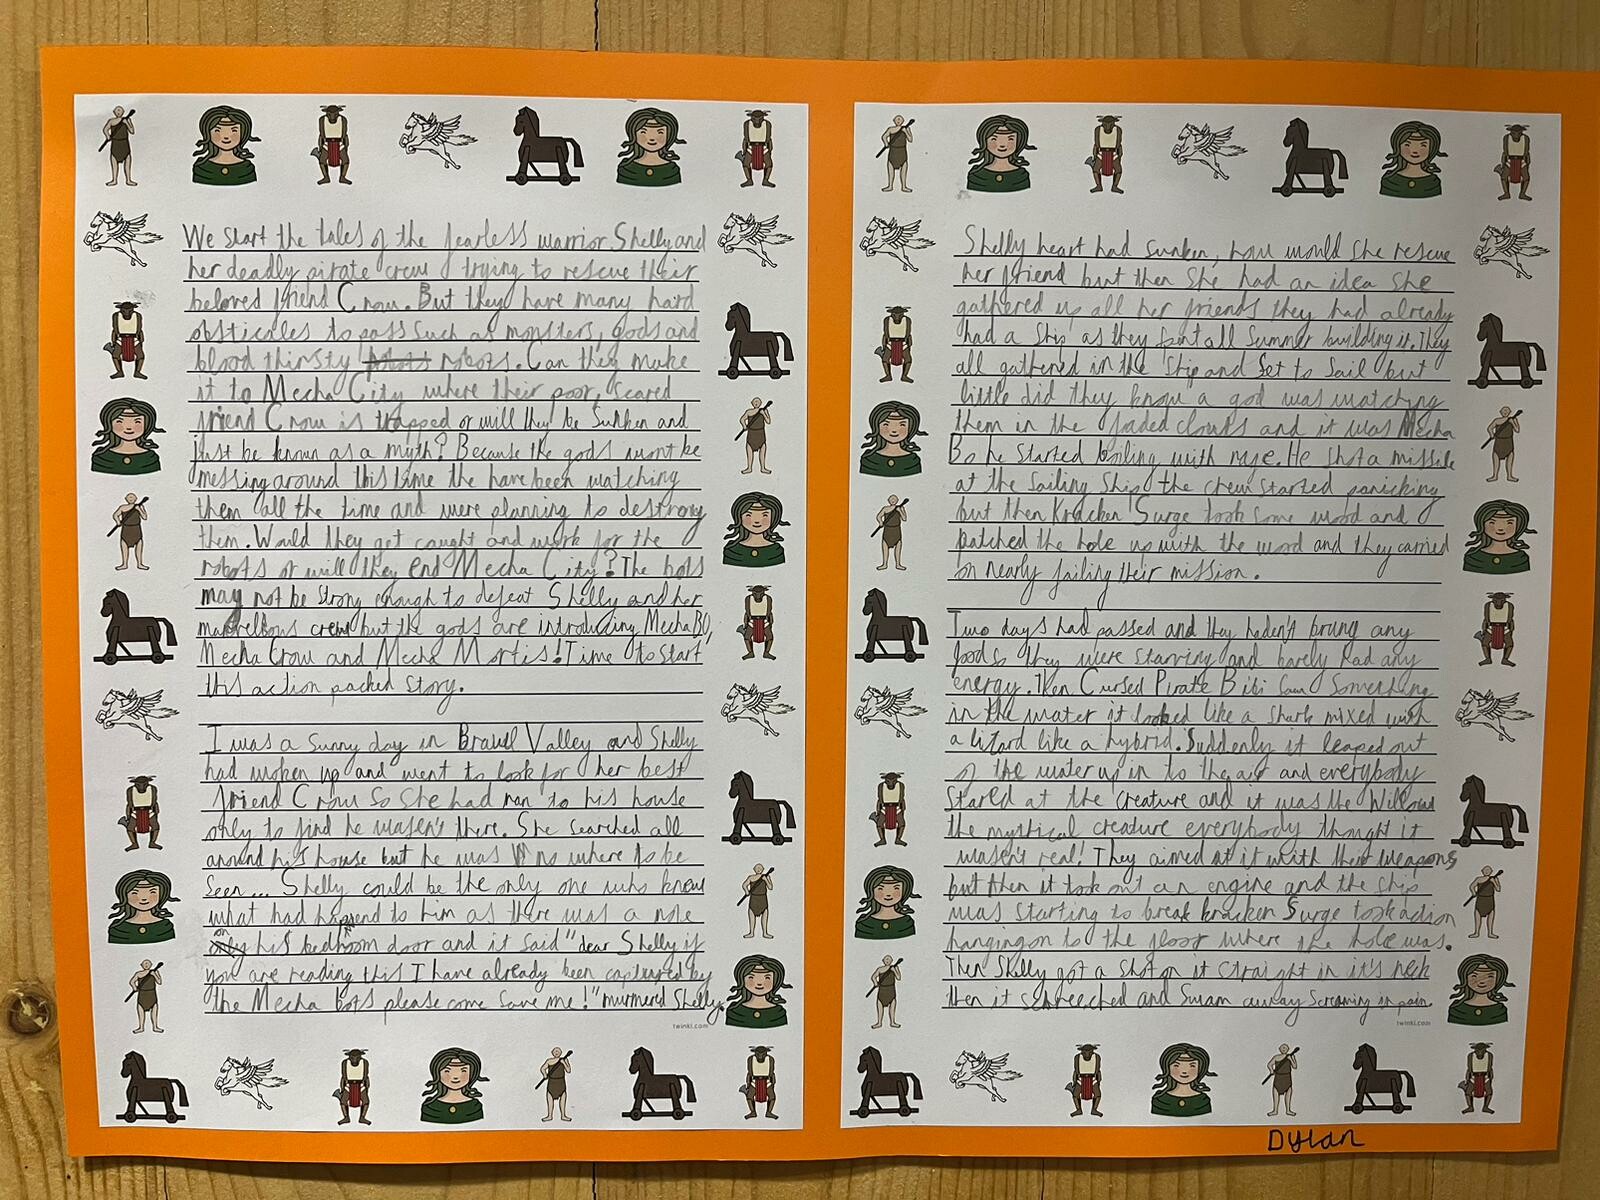 We start the tales of the fearless warrior Shelly and
her deadly pirate crew trying to rescue their
beloved friend Crow. But they have many hard
obsticales to pass such as monsters, gods and
blood thirsty robots. Can they make
it to Mecha City where their poor, scared
friend Crow is trapped or will they be Sunken and
just be known as a myth? Because the gods wont be
messing around this time the have been watching
them all the time and were planning to destroy
them. Would they get caught and work for the
robots or will they end Mecha City? The bots
may not be strong enough to defeat Shelly and her
marvellous crew but the gods are introducing Mecha BO,
Mecha Crow and Mecha Mortis! Time to start
this action packed story.
I was a sunny day in Brawl Valley and Shelly
had woken up and went to look for her best
friend Crow So she had ran to his house
only to find he wasen't there. She searched all
around his house but he was no where to be
seen... Shelly could be the only one who knew
what had happend to him as there was a note
on his bedroom door and it said "dear Shelly if
you are reading this I have already been captured by
the Mecha bots please come save me!" murmered Shelly.
twinkl.com
Shelly heart had sunken, how would she rescue
her friend but then She had an idea She
gathered up all her friends they had already
had a ship as they all Summer building it. They
all gathered in the Ship and Set to Sail but
little did they know a god was watching
them in the jaded clouds and it was Mecha
Bo he started boiling with rage. He shot a missile
at the sailing Ship the crew started panicking
but then Kracken Surge took some wood and
patched the hole up with the wood and they carried
on nearly failing their mission.
Two days had passed and they haden't brung any
food so they were starving and barely had any
energy. Then Cursed Pirate Bibi saw Something
in the water it looked like a shark mixed with
a lizard like a hybrid. Suddenly it leaped out
of the water up in to the air and everybody
stared at the creature and it was the Willow
the mythical creature everybody thought it
wasen't real! They aimed at it with their weapons
but then it took out an engine and the ship
was starting to break kracken Surge took action
hanging on to the floor where the hole was.
Then Shelly got a shot on it straight in it's neck
then it schreeched and Swam away Screaming in pain.
twinkl.com
Dylan